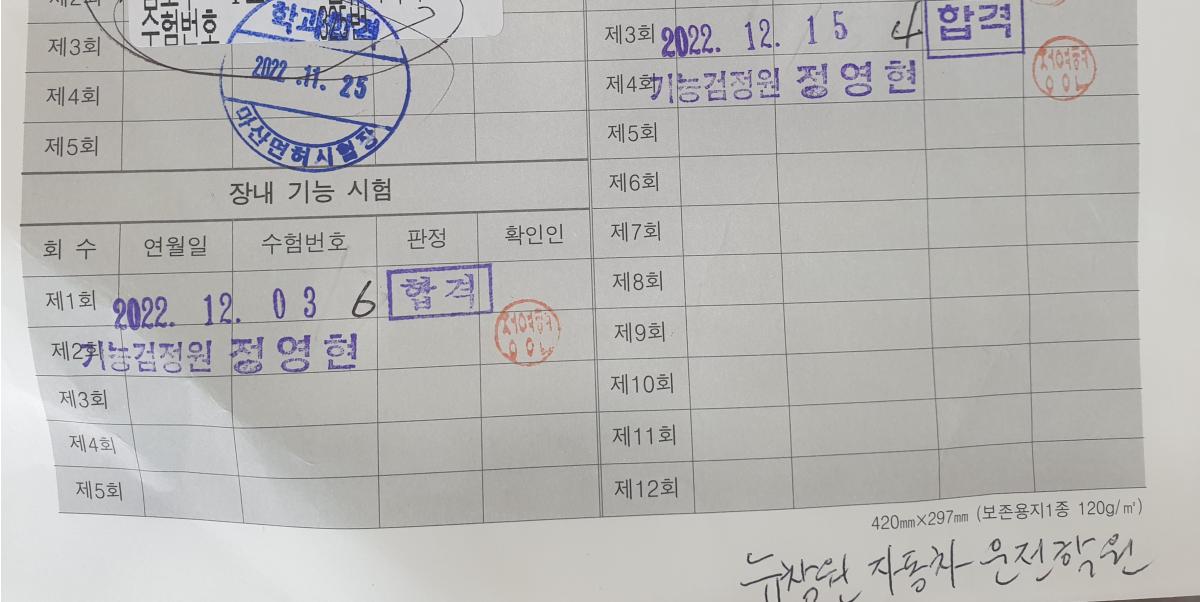 수험번호
제3회
제4회
제5회
2022.11.25
마산면허시험장
장내 기능 시험
회 수 연월일 수험번호 판정 확인인
제1회 2022. 12. 03 6 합격
제2회 기능검정원 정영현
제3회
제4회
제5회
제3회 2022. 12. 15 4 합격
제4회 기능검정원 정영현
제5회
제6회
제7회
제8회
제9회
제10회
제11회
제12회
420㎜×297㎜ (보존용지1종 120g/㎡)
뉴창원 자동차 운전학원